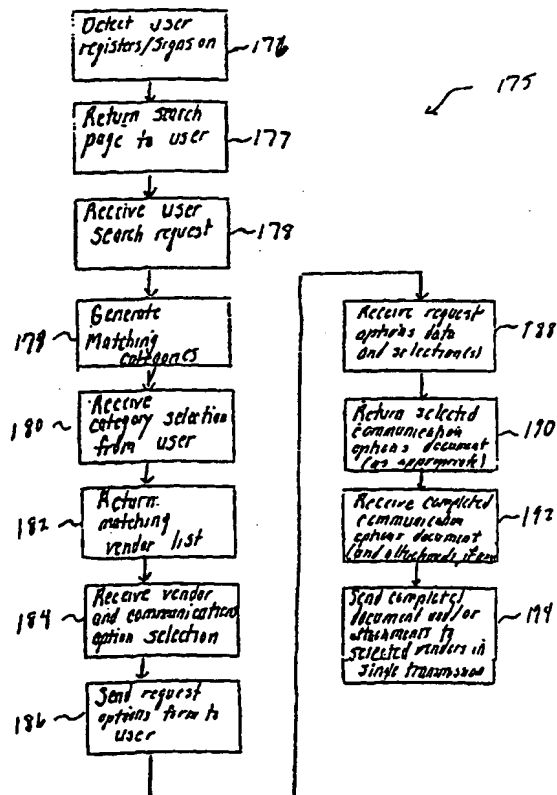 Detect user
registers/signs on
176
175
Return search
page to user
177
Receive user
search request
178
Generate
Matching
categories
179
Receive
category selection
from user
180
Return
matching
vendor list
182
Receive vendor
and communication
option selection
184
Send request
options form to
user
186
Receive request
options data
and selection(s)
188
Return selected
communication
options document
(as appropriate)
190
Receive completed
communication
options document
(and attachments, if any
192
Send completed
document and/or
attachments to
selected vendors in
single transmission
194